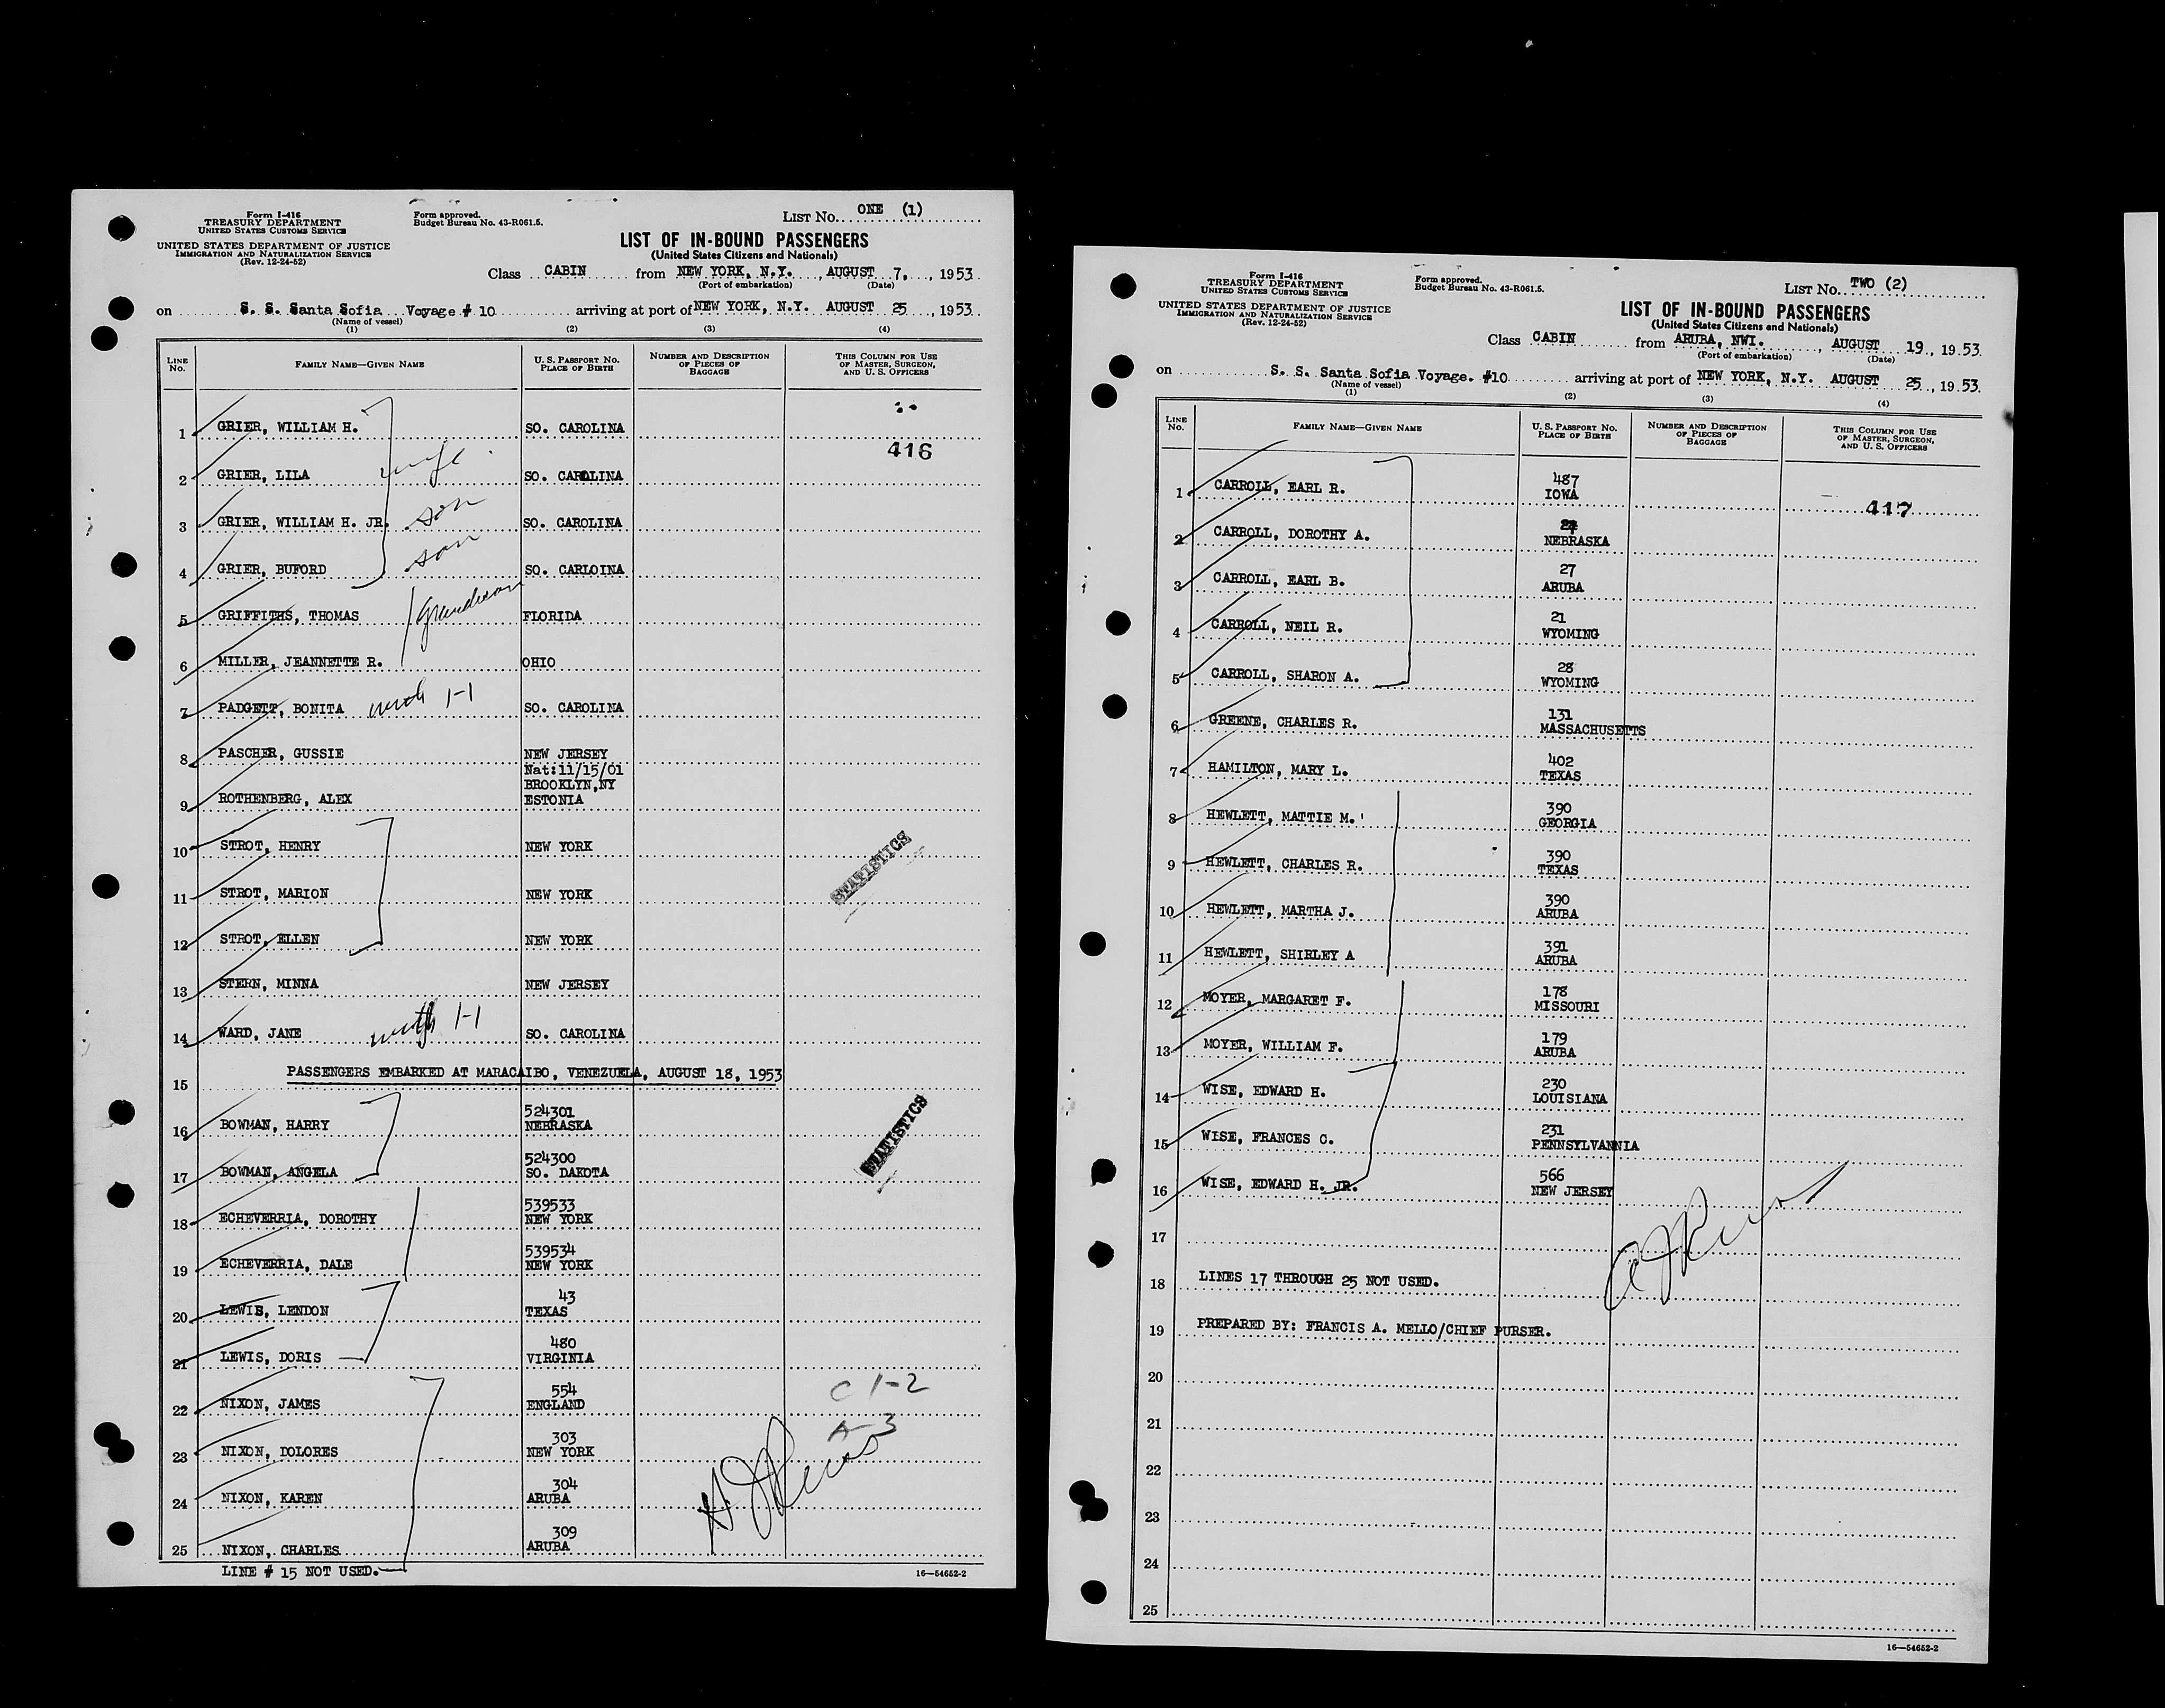 Form I-416
TREASURY DEPARTMENT
UNITED STATES CUSTOMS SERVICE
UNITED STATES DEPARTMENT OF JUSTICE
IMMIGRATION AND NATURALIZATION SERVICE
(Rev. 12-24-52)
Form approved.
Budget Bureau No. 43-R061.5.
LIST NO. ONE (1)
LIST OF IN-BOUND PASSENGERS
(United States Citizens and Nationals)
Class CABIN from NEW YORK, N.Y., AUGUST 7, 1953
(Port of embarkation) (Date)
on S. S. Santa Sofia Voyage # 10 arriving at port of NEW YORK, N.Y. AUGUST 25, 1953
(Name of vessel)
(1) (2) (3) (4)
LINE No. FAMILY NAME—GIVEN NAME U. S. PASSPORT NO. PLACE OF BIRTH NUMBER AND DESCRIPTION OF PIECES OF BAGGAGE THIS COLUMN FOR USE OF MASTER, SURGEON, AND U. S. OFFICERS
1 GRIER, WILLIAM H. SO. CAROLINA
416
2 GRIER, LILA wife SO. CAROLINA
3 GRIER, WILLIAM H. JR. son SO. CAROLINA
4 GRIER, BUFORD son SO. CARLOINA
5 GRIFFITHS, THOMAS Grandson FLORIDA
6 MILLER, JEANNETTE R. OHIO
7 PADGETT, BONITA with 1-1 SO. CAROLINA
8 PASCHER, GUSSIE NEW JERSEY
Nat:11/15/01
BROOKLYN,NY
9 ROTHENBERG, ALEX ESTONIA
10 STROT, HENRY NEW YORK
STATISTICS
11 STROT, MARION NEW YORK
12 STROT, ELLEN NEW YORK
13 STERN, MINNA NEW JERSEY
14 WARD, JANE with 1-1 SO. CAROLINA
PASSENGERS EMBARKED AT MARACAIBO, VENEZUELA, AUGUST 18, 1953
15
524301
16 BOWMAN, HARRY NEBRASKA
STATISTICS
524300
17 BOWMAN, ANGELA SO. DAKOTA
539533
18 ECHEVERRIA, DOROTHY NEW YORK
539534
19 ECHEVERRIA, DALE NEW YORK
43
20 LEWIS, LENDON TEXAS
480
21 LEWIS, DORIS VIRGINIA
554
C 1-2
22 NIXON, JAMES ENGLAND
A-3
303
23 NIXON, DOLORES NEW YORK
304
24 NIXON, KAREN ARUBA
309
25 NIXON, CHARLES ARUBA
LINE # 15 NOT USED.
16—54652-2
Form I-416
TREASURY DEPARTMENT
UNITED STATES CUSTOMS SERVICE
UNITED STATES DEPARTMENT OF JUSTICE
IMMIGRATION AND NATURALIZATION SERVICE
(Rev. 12-24-52)
Form approved.
Budget Bureau No. 43-R061.5.
LIST NO. TWO (2)
LIST OF IN-BOUND PASSENGERS
(United States Citizens and Nationals)
Class CABIN from ARUBA, NWI., AUGUST 19, 1953.
(Port of embarkation) (Date)
on S. S. Santa Sofia Voyage. #10 arriving at port of NEW YORK, N.Y. AUGUST 25, 1953.
(Name of vessel)
(1) (2) (3) (4)
LINE No. FAMILY NAME—GIVEN NAME U. S. PASSPORT NO. PLACE OF BIRTH NUMBER AND DESCRIPTION OF PIECES OF BAGGAGE THIS COLUMN FOR USE OF MASTER, SURGEON, AND U. S. OFFICERS
487
1 CARROLL, EARL R. IOWA
417
2 CARROLL, DOROTHY A. NEBRASKA
27
3 CARROLL, EARL B. ARUBA
21
4 CARROLL, NEIL R. WYOMING
28
5 CARROLL, SHARON A. WYOMING
131
6 GREENE, CHARLES R. MASSACHUSETTS
402
7 HAMILTON, MARY L. TEXAS
390
8 HEWLETT, MATTIE M. GEORGIA
390
9 HEWLETT, CHARLES R. TEXAS
390
10 HEWLETT, MARTHA J. ARUBA
391
11 HEWLETT, SHIRLEY A ARUBA
178
12 MOYER, MARGARET F. MISSOURI
179
13 MOYER, WILLIAM F. ARUBA
230
14 WISE, EDWARD H. LOUISIANA
231
15 WISE, FRANCES C. PENNSYLVANNIA
566
16 WISE, EDWARD H. JR. NEW JERSEY
17
18 LINES 17 THROUGH 25 NOT USED.
19 PREPARED BY: FRANCIS A. MELLO/CHIEF PURSER.
20
21
22
23
24
25
16—54652-2